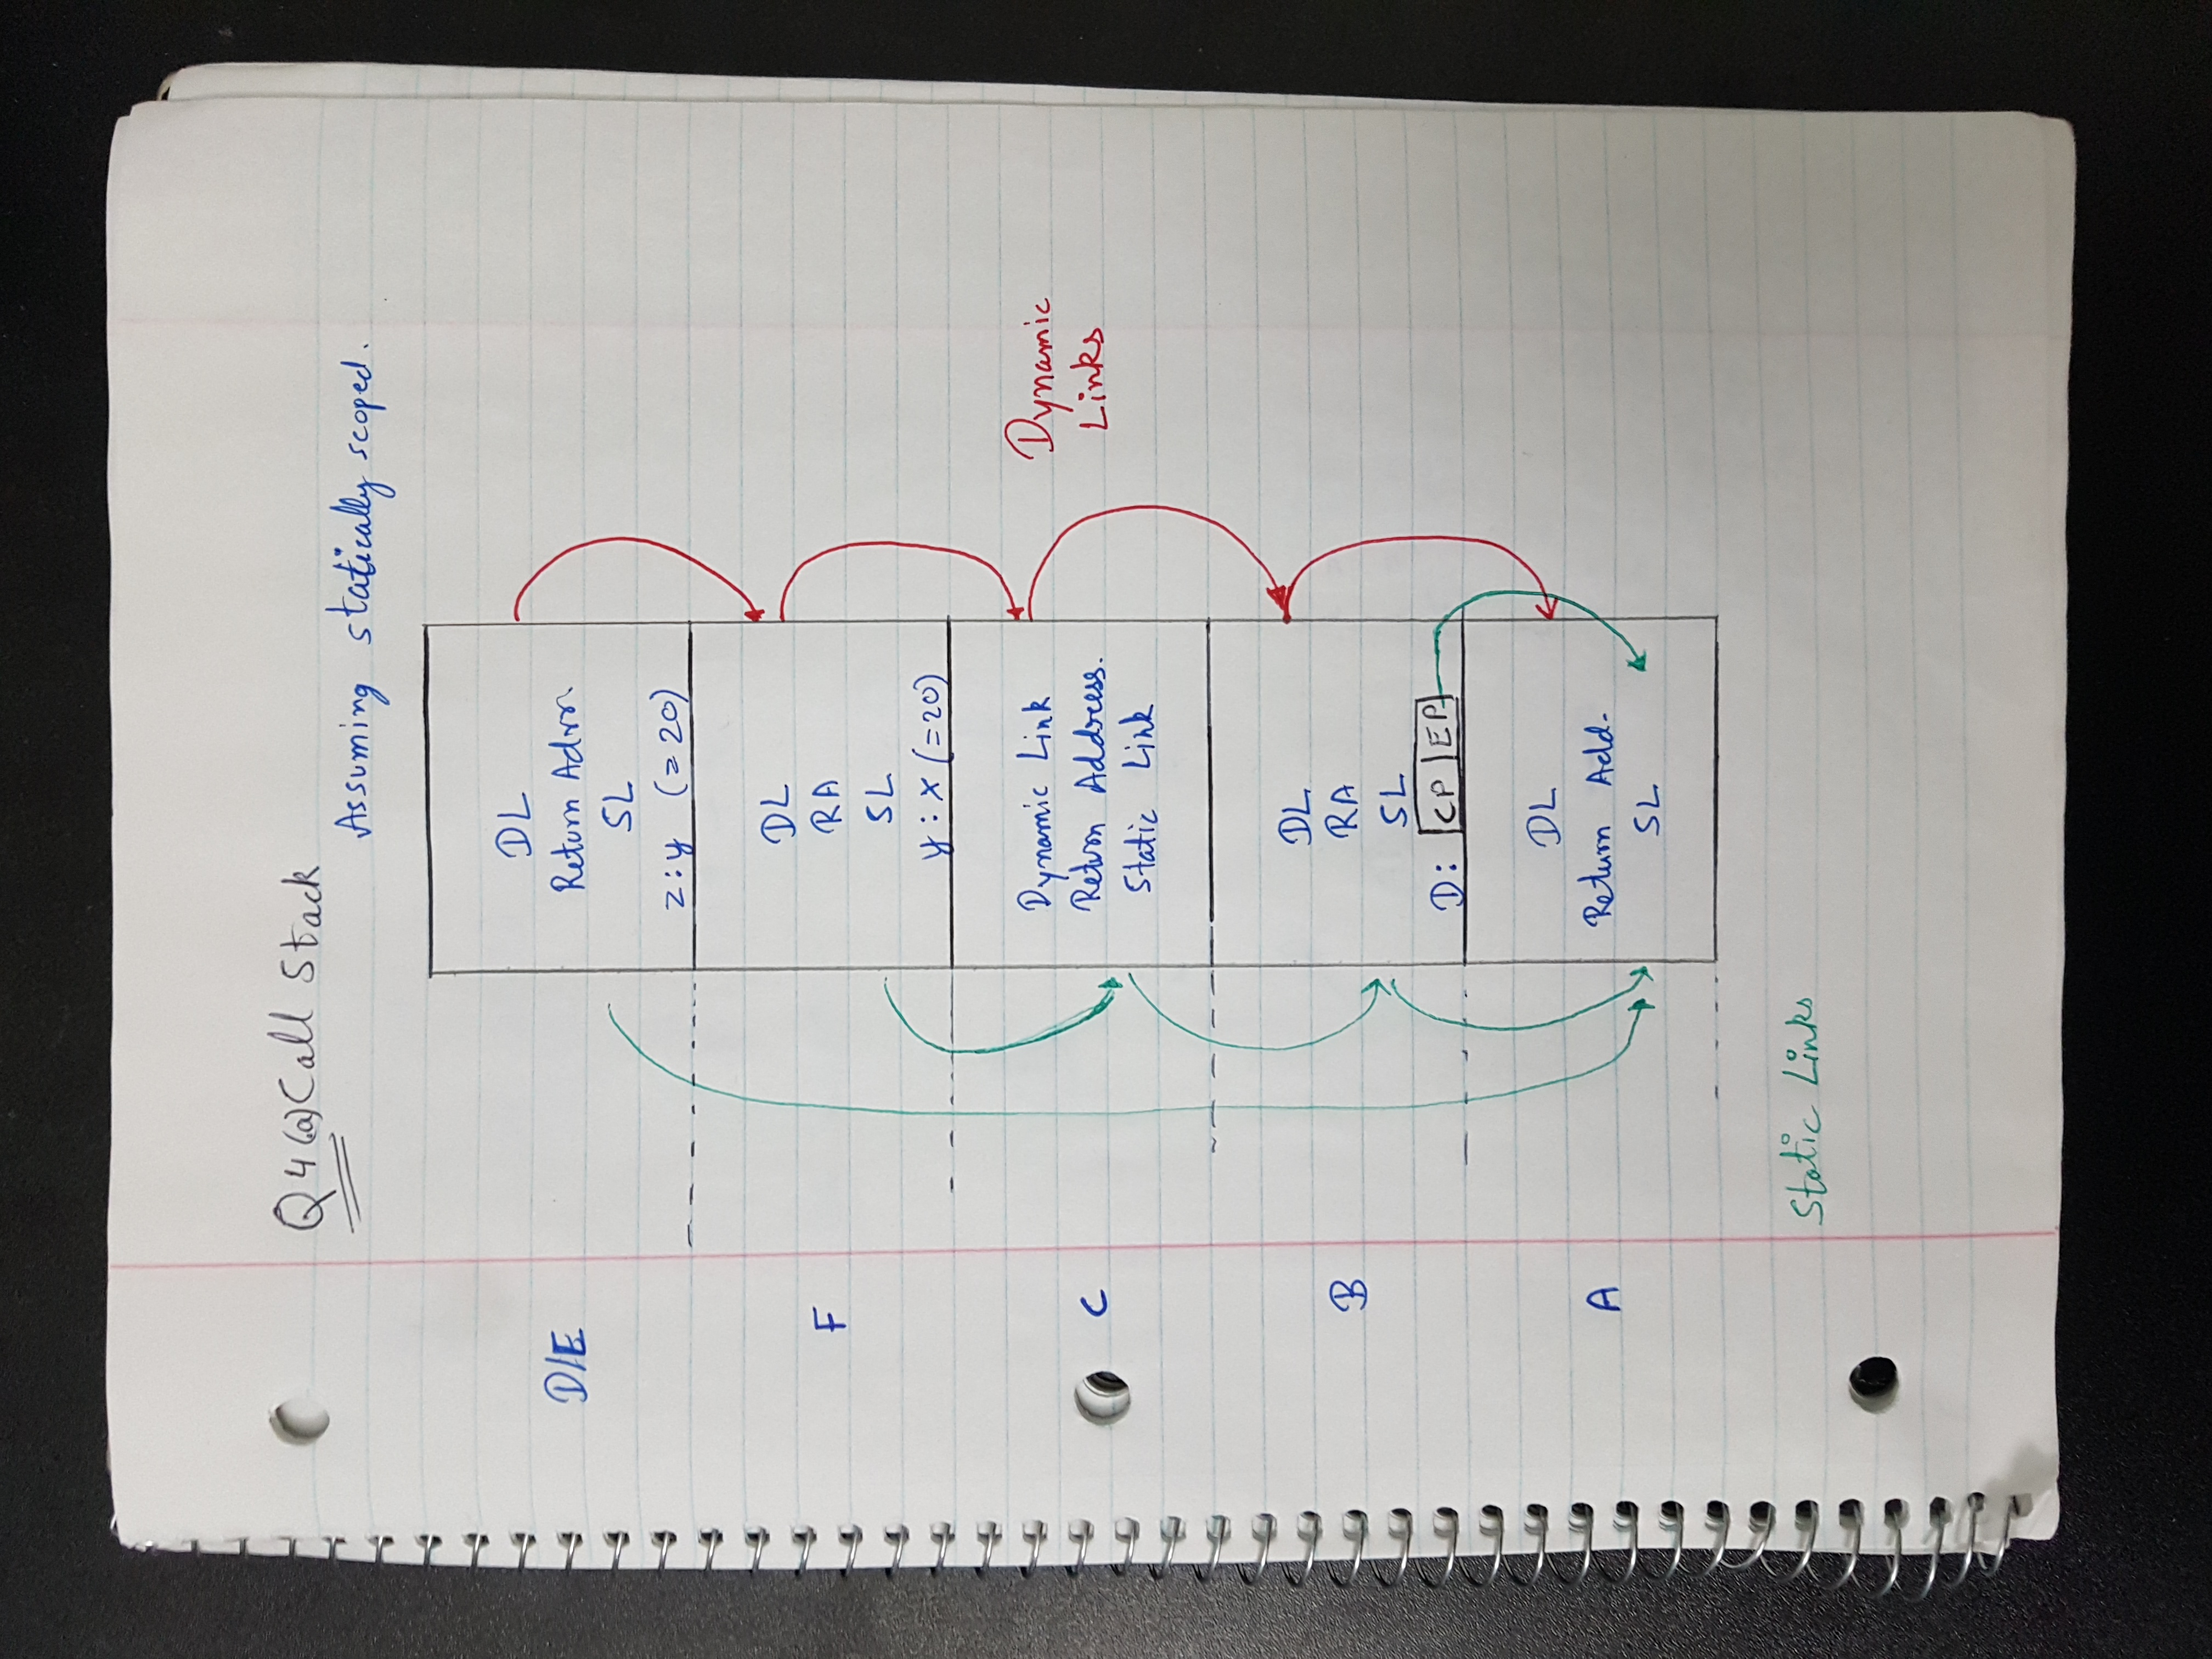 Q4(a) Call Stack
Assuming statically scoped.
D/E
DL
Return Adrr.
SL
z:y (=20)
F
DL
RA
SL
y:x (=20)
C
Dynamic Link
Return Address.
Static Link
Dynamic
Links
B
DL
RA
SL
D: CP EP
A
DL
Return Add.
SL
Static Links